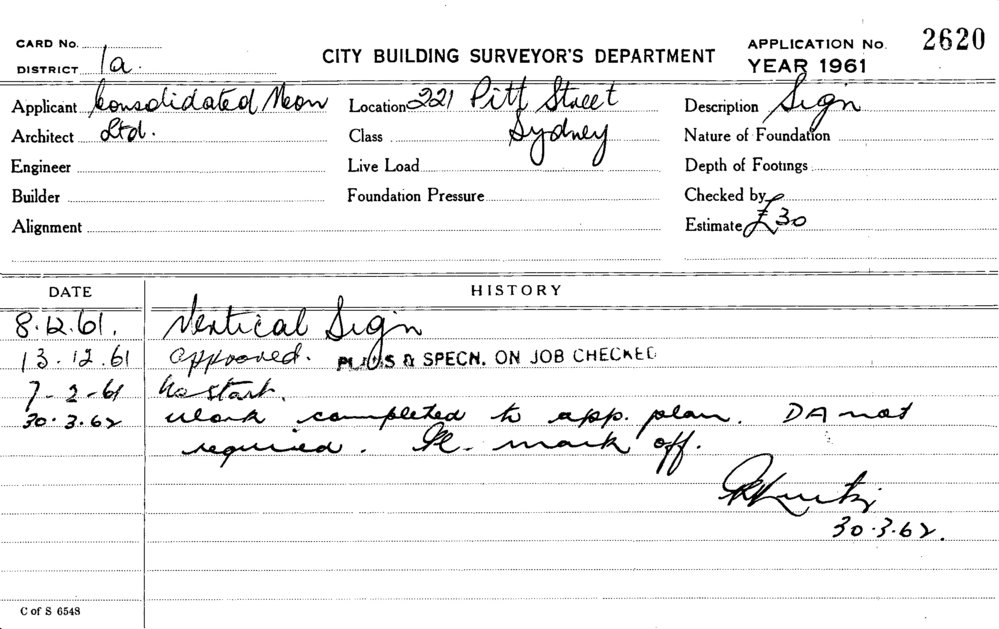 CARD No.
DISTRICT 1a.
CITY BUILDING SURVEYOR'S DEPARTMENT
APPLICATION No. 2620
YEAR 1961
Applicant Consolidated Neon Location 221 Pitt Street Description Sign
Architect Ltd. Class Sydney Nature of Foundation
Engineer Live Load Depth of Footings
Builder Foundation Pressure Checked by
Alignment Estimate £30
DATE HISTORY
8.12.61. Vertical Sign
13.12.61 approved. PLANS & SPECN. ON JOB CHECKED
7-2-61 No start.
30.3.62 work completed to app. plan. DA not
required. Pl. mark off.
30.3.62.
C of S 6548